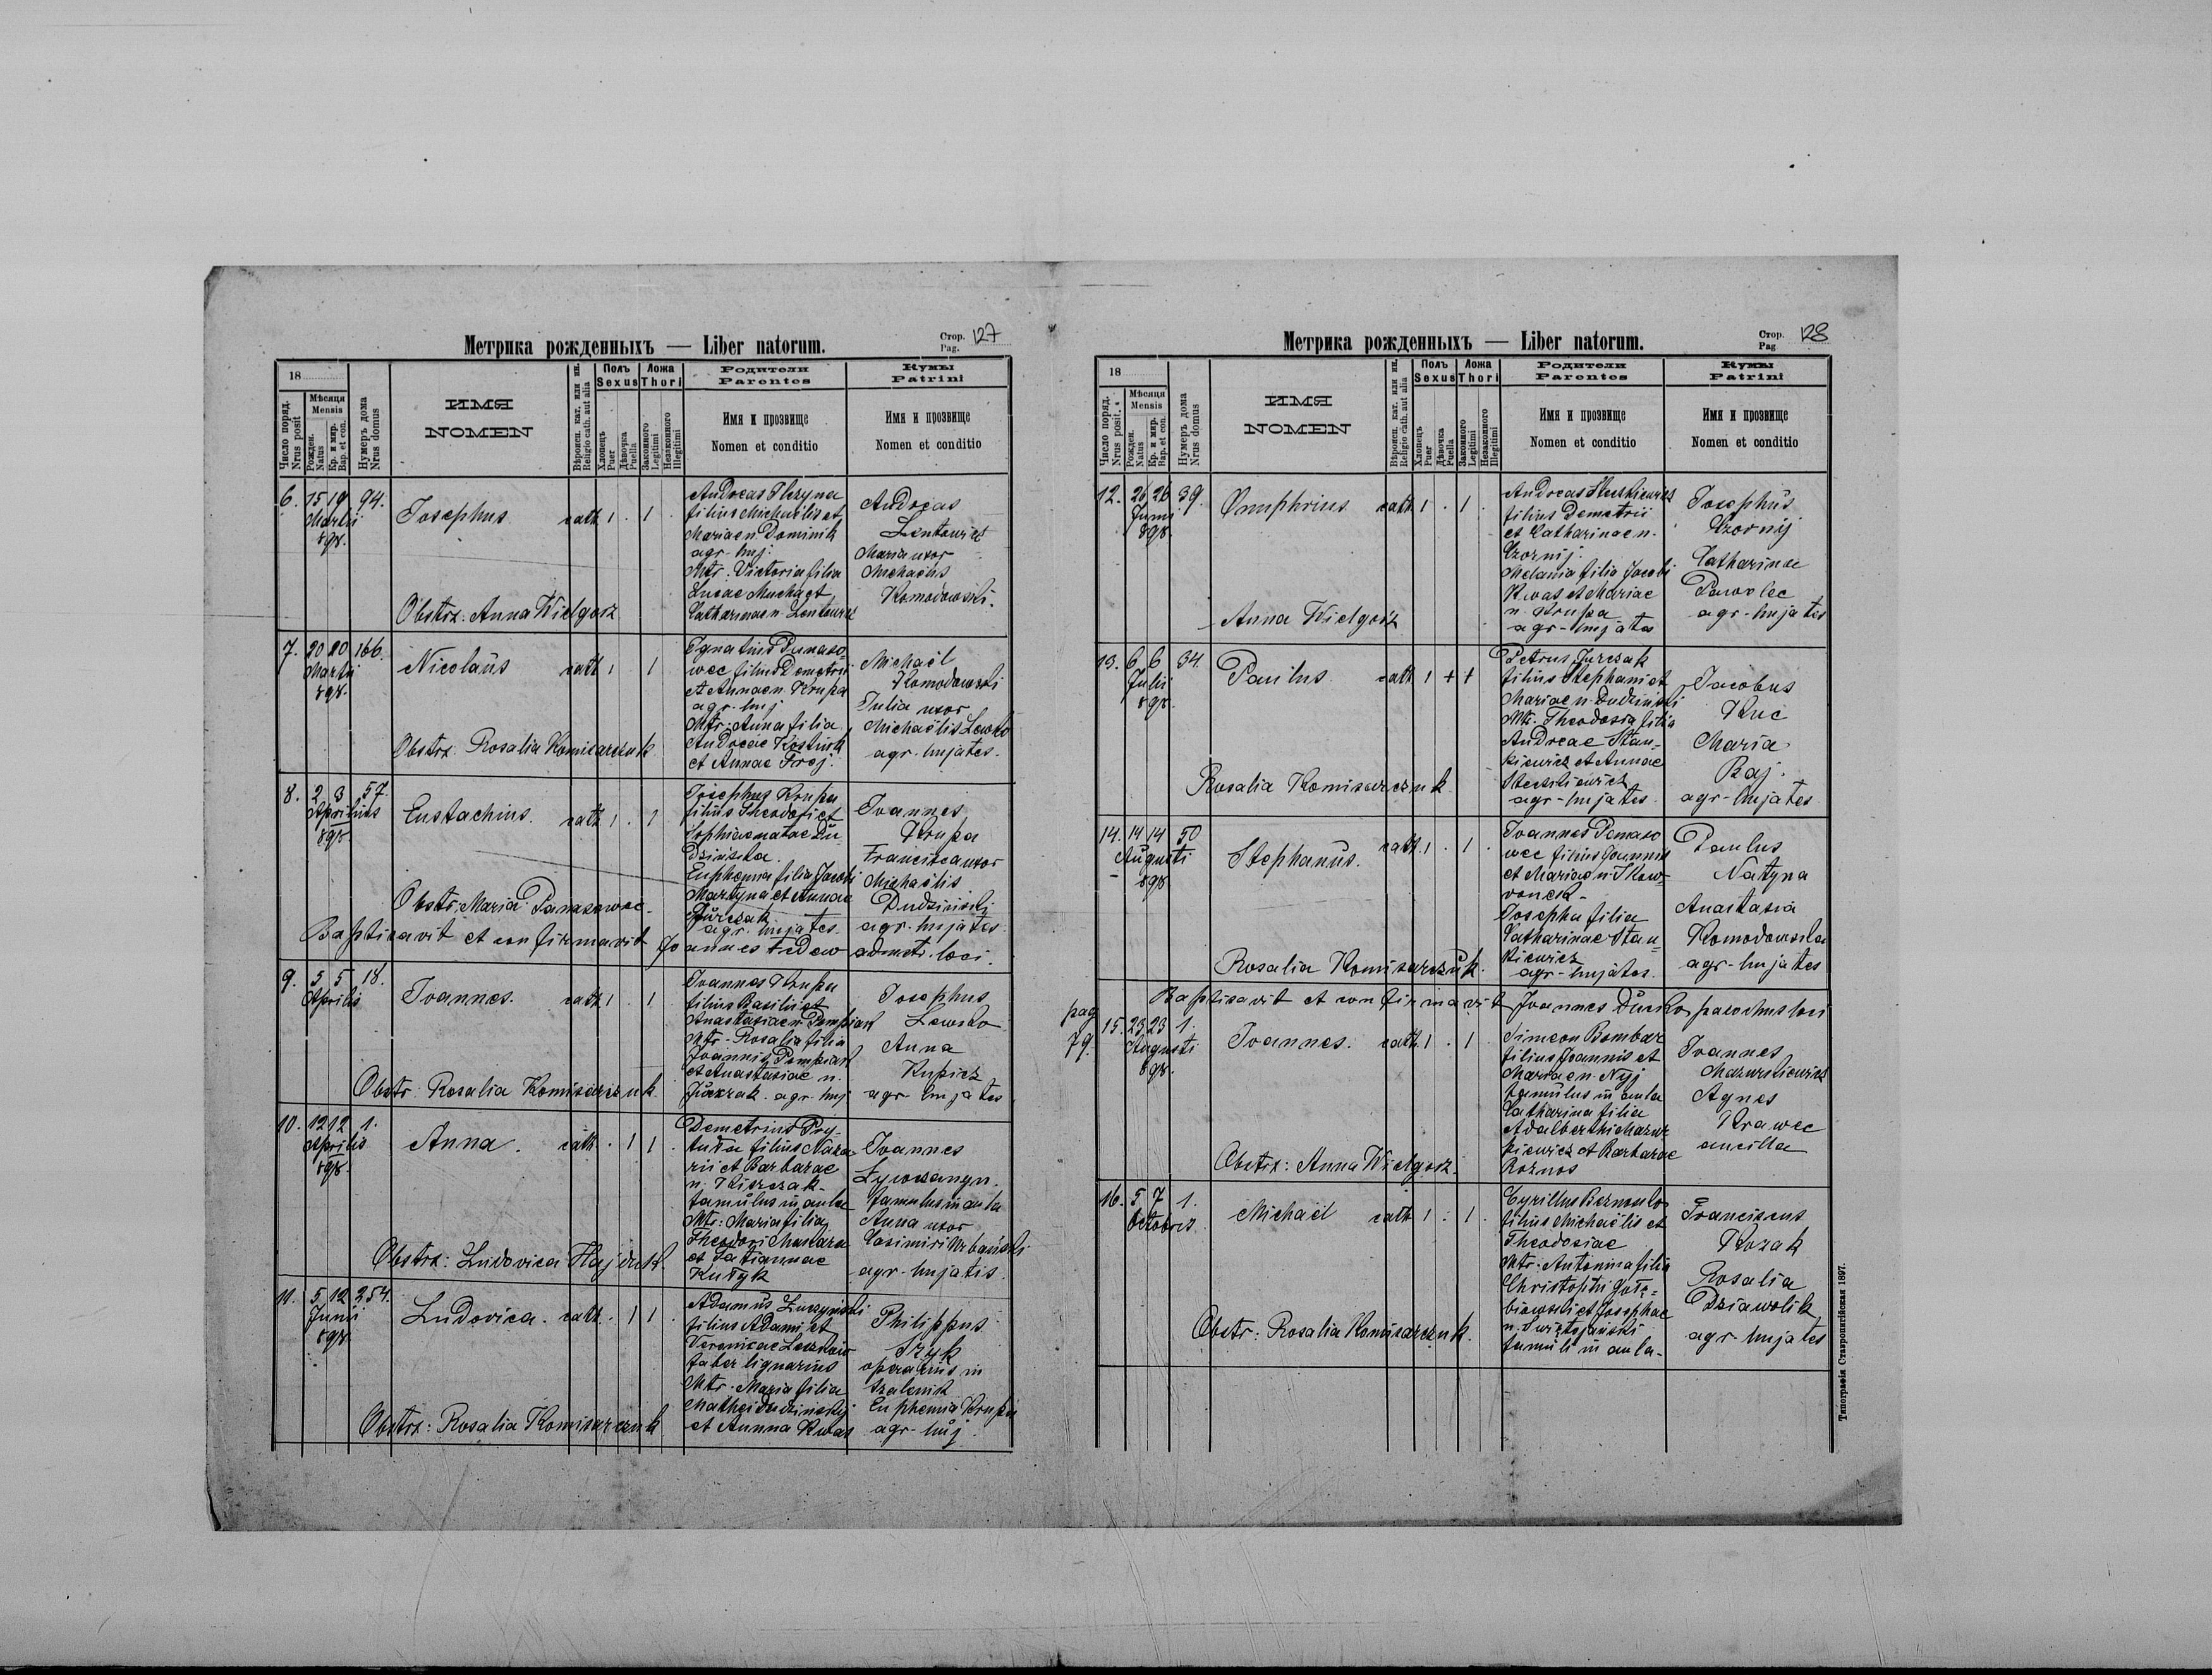 Метрика рожденныхъ — Liber natorum.
Стор. Pag. 127
18
Число поряд. Nrus posit
Мѣсяця Mensis
Рожден. Natus
Кр. и мир. Bap. et con.
Нумеръ дома Nrus domus
ИМЯ
NOMEN
Вѣроисп. кат. или ин. Religio cath. aut alia
Полъ
Sexus
Хлопецъ Puer
Дѣвочка Puella
Ложа
Thori
Законного Legitimi
Незаконного Illegitimi
Родители
Parentes
Имя и прозвище
Nomen et conditio
Кумы
Patrini
Имя и прозвище
Nomen et conditio
6. 15 19 94.
Martii
898.
Josephus cath 1 . 1 .
Andreas
filius Michaelis et
Mariae n. Dominik
agr. huj.
Mtr. Victoria filia
Lucae Mucha et
Catharinae n.
Andreas
Maria uxor
Michaelis
Komodowski.
Obstrx: Anna Wielgosz
7. 20 20 166.
Martii
898.
Nicolaus cath 1 1
Ignatius Panaso-
wec filius Demetrii
et Annae n. Krupa
agr. huj
Mtr: Anna filia
Andreae
et Annae
Michael
Komodowski
Julia uxor
Michaelis Lewko
agr. hujates.
Obstrx. Rosalia Komisarczuk
8. 2 3 57.
Aprilius
898.
Eustachius. cath 1 . 1
Josephus Krupa
filius Theodosi et
Sophiae natae Du
dzińska.
Euphemia filia Jacobi
Martyna et Annae
Jurczak
agr. hujates.
Joannes
Krupa
Francisca uxor
Michaelis
Dudzinskij
agr. hujates
Obstr: Maria Panasowec.
Baptisavit et confirmavit Joannes admstr. loci.
9. 5 5 18.
Aprilis
Joannes. cath 1 . 1
Joannes Krupa
filius Basilii et
Anastasiae n.
Mtr. Rosalia filia
Joannis
et Anastasiae n.
Jurczak. agr. huj
Josephus
Lewko
Anna
Kupicz
agr. hujates
Obstr. Rosalia Komisarczuk
10. 12 12 1.
Aprilis
898.
Anna. cath . 1 1 .
Demetrius Pry-
tuła filius Naza
rii et Barbarae
n. Kiszczak
famulus in aula
Mtr: Maria filia
Theodori
et Tatiannae
Kutyk
Joannes
famulus in aula
Anna uxor
Casimiri Urbański
agr. hujatis.
Obstrx: Ludovica Hajduk.
11. 5 12 254.
Junii
898
Ludovica. cath. . 1 1 .
Adamus
filius Adami et
Veronicae
faber lignarius
Mtr. Maria filia
Mathei Dudzinskij
et Annna Kwas
Philippus
Szyk
operarius in
Euphemia Krupa
agr. huj.
Obstrx: Rosalia Komisarczuk
Метрика рожденныхъ — Liber natorum.
Стор. Pag 128
18
Число поряд. Nrus posit.
Мѣсяця Mensis
Рожден. Natus
Кр. и мир. Bap. et con.
Нумеръ дома Nrus domus
ИМЯ
NOMEN
Вѣроисп. кат. или ин. Religio cath. aut alia
Полъ
Sexus
Хлопецъ Puer
Дѣвочка Puella
Ложа
Thori
Законного Legitimi
Незаконного Illegitimi
Родители
Parentes
Имя и прозвище
Nomen et conditio
Кумы
Patrini
Имя и прозвище
Nomen et conditio
12. 26 26 39.
Junii
898
Onuphrius cath 1 . 1 .
Andreas
filius Demetrii
et Catharinae n.
Czornij.
Melania filia Jacobi
Kwas et Mariae
n. Krupa
agr-hujates
Josephus
Czornij
Catharina
Pawolec
agr-hujates
Anna Wielgosz
13. 6 6 34.
Julii
898.
Paulus. cath 1 + +
Petrus Jurczak
filius Stephani et
Mariae n. Dudzinski
Mtr. Theodosia filia
Andreae Stan-
kiewicz et Annae
agr-hujates.
Jacobus
Kuc
Maria
Baj.
agr-hujates
Rosalia Komisarczuk
14. 14 14 50
Augusti
898
Stephanus. cath. 1 . 1 .
Joannes Panaso
wec filius Joannis
et Mariae n. Skow-
ronek-
Josepha filia
Catharinae Stan-
kiewicz
agr-hujates.
Paulus
Natyna
Anastasia
Komodowska
agr-hujates
Rosalia Komisarczuk.
Baptisavit et confirmavit Joannes parochus loci
pag
79.
15. 23 23 1.
Augusti
898.
Joannes. cath 1 . 1 .
Simeon Bombar
filius Joannis et
Mariae n. Nyj
famulus in aula
Catharina filia
Adalberthi Mazur
kiewicz et Barbarae
Roznos
Joannes
Mazurkiewicz
Agnes
Krawec
ancilla
Obstrx: Anna Wielgosz.
16. 5 7 1.
Octobris
Michael cath 1 . 1 .
Cyrillus
filius Michaelis et
Theodosiae
Mtr. Antonina filia
Christophi Gołę-
biowski et Josephae
n. Swiętojański
famuli in aula-
Franciscus
Kozak
Rosalia
Dziawolik
agr-hujates
Obstr: Rosalia Komisarczuk.
Типографія Ставропигійская 1897.